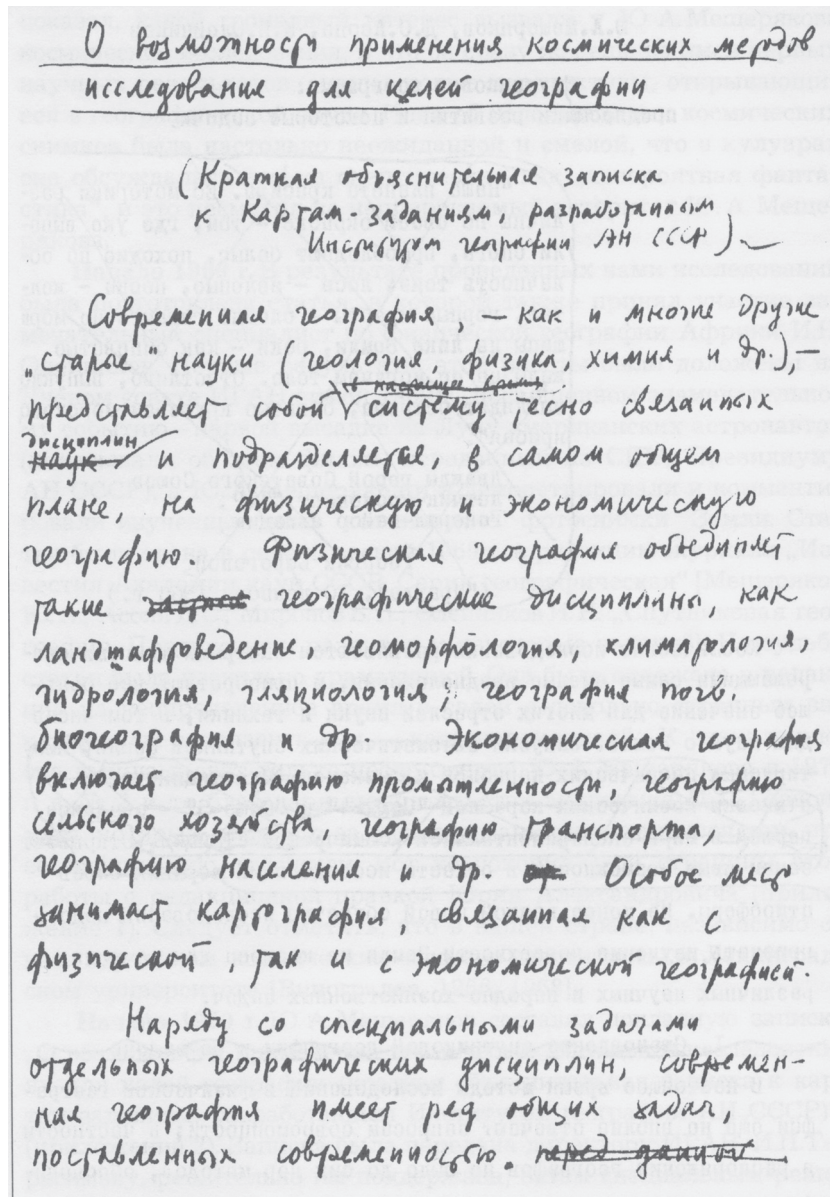 О возможности применения космических методов
исследования для целей географии
(Краткая объяснительная записка
к Картам-заданиям, разработанным
Институтом географии АН СССР)
Современная география – как и многие другие
„старые" науки (геология, физика, химия и др.), –
в настоящее время
представляет собой систему тесно связанных
дисциплин
наук и подразделяется, в самом общем
плане, на физическую и экономическую
географию. Физическая география объединяет
такие географические дисциплины, как
ландшафтоведение, геоморфология, климатология,
гидрология, гляциология, география почв,
биогеография и др. Экономическая география
включает географию промышленности, географию
сельского хозяйства, географию транспорта,
географию населения и др. Особое место
занимает картография, связанная как с
физической, так и с экономической географией.
Наряду со специальными задачами
отдельных географических дисциплин, современ-
ная география имеет ряд общих задач,
поставленных современностью. перед данной